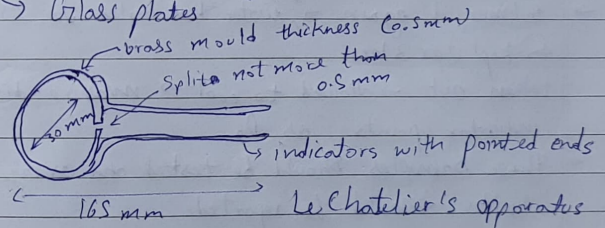 → Glass plates
brass mould thickness (0.5mm)
Split not more than
0.5 mm
30 mm
indicators with pointed ends
165 mm
Le Chatelier's apparatus